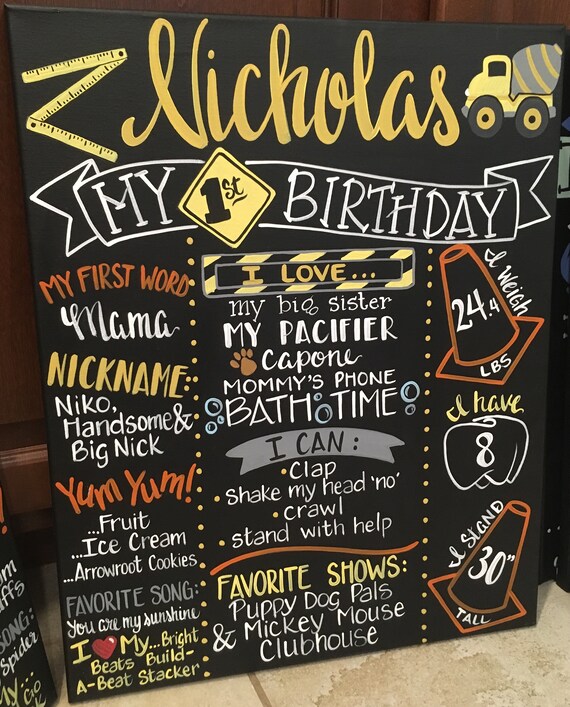 Nicholas
MY 1st BIRTHDAY
MY FIRST WORD
Mama
NICKNAME:
Niko,
Handsome &
Big Nick
Yum Yum!
...Fruit
...Ice Cream
...Arrowroot Cookies
FAVORITE SONG:
You are my sunshine
I ❤ My...Bright
Beats Build-
A-Beat Stacker
I LOVE...
my big sister
MY PACIFIER
Capone
MOMMY'S PHONE
BATH TIME
I CAN:
• Clap
• shake my head 'no'
• crawl
• stand with help
FAVORITE SHOWS:
Puppy Dog Pals
& Mickey Mouse
Clubhouse
I Weigh
24.4
LBS
I have
8
I STAND
30"
TALL
SONG:
Spider